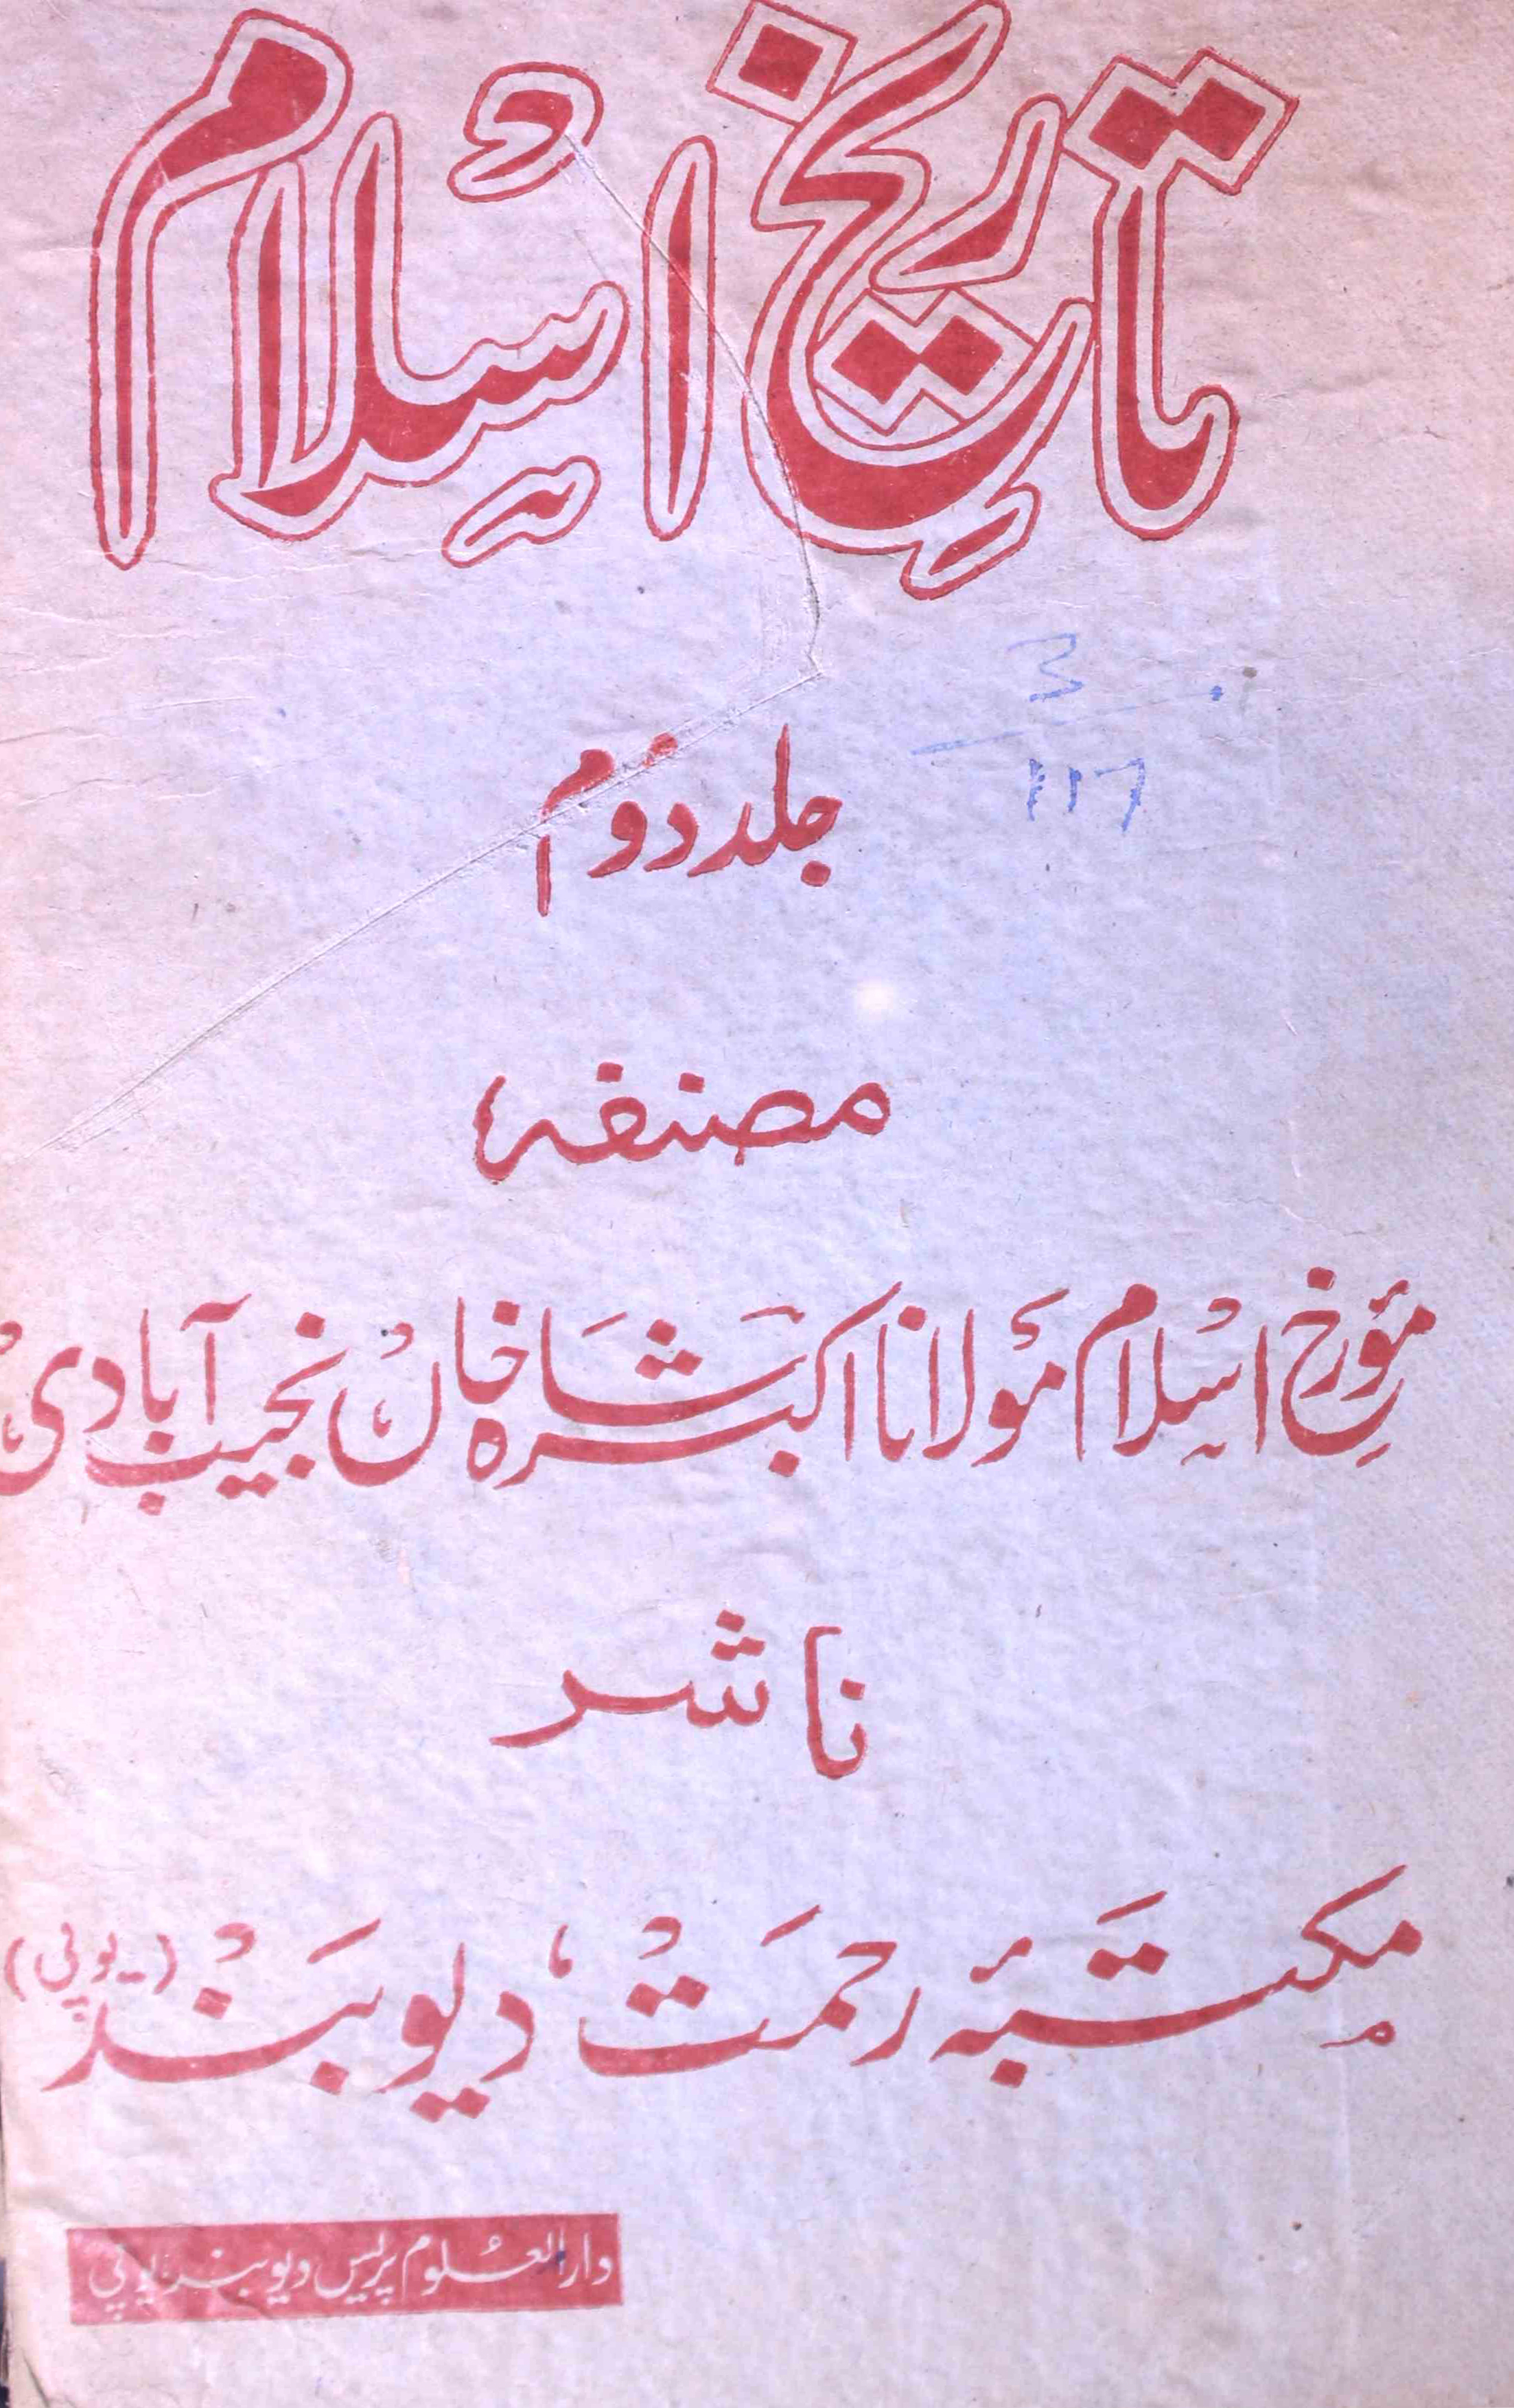 تاریخ اسلام
3
117
جلد دوم
مصنفہ
مؤرخ اسلام مولانا اکبر شاہ خاں نجیب آبادی
ناشر
مکتبۂ رحمت، دیوبند (یو-پی)
دارالعلوم پریس دیوبند یوپی